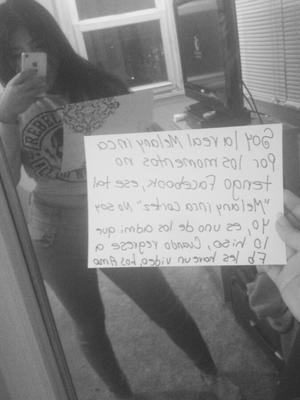 REBEL
Soy la real Melany inca
Por los momentos no
tengo Facebook, ese tal
"Melany inca Cortez" No soy
yo, es uno de los admi que
lo hiso, Cuando regrese a
Fb les hare un video, Los Amo